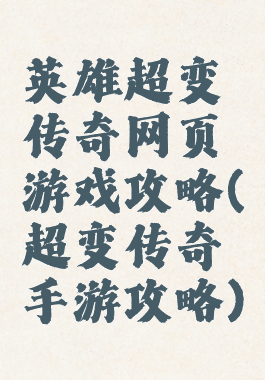 英雄超变
传奇网页
游戏攻略(
超变传奇
手游攻略)